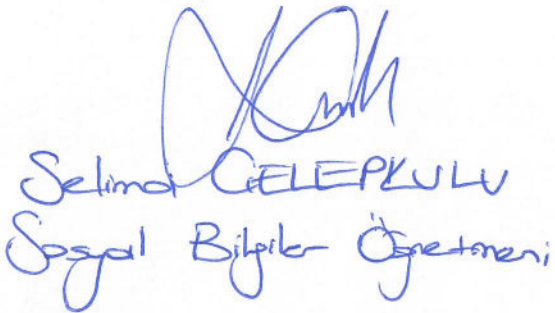 Selma GELEPKULU
Sosyal Bilgiler Öğretmeni